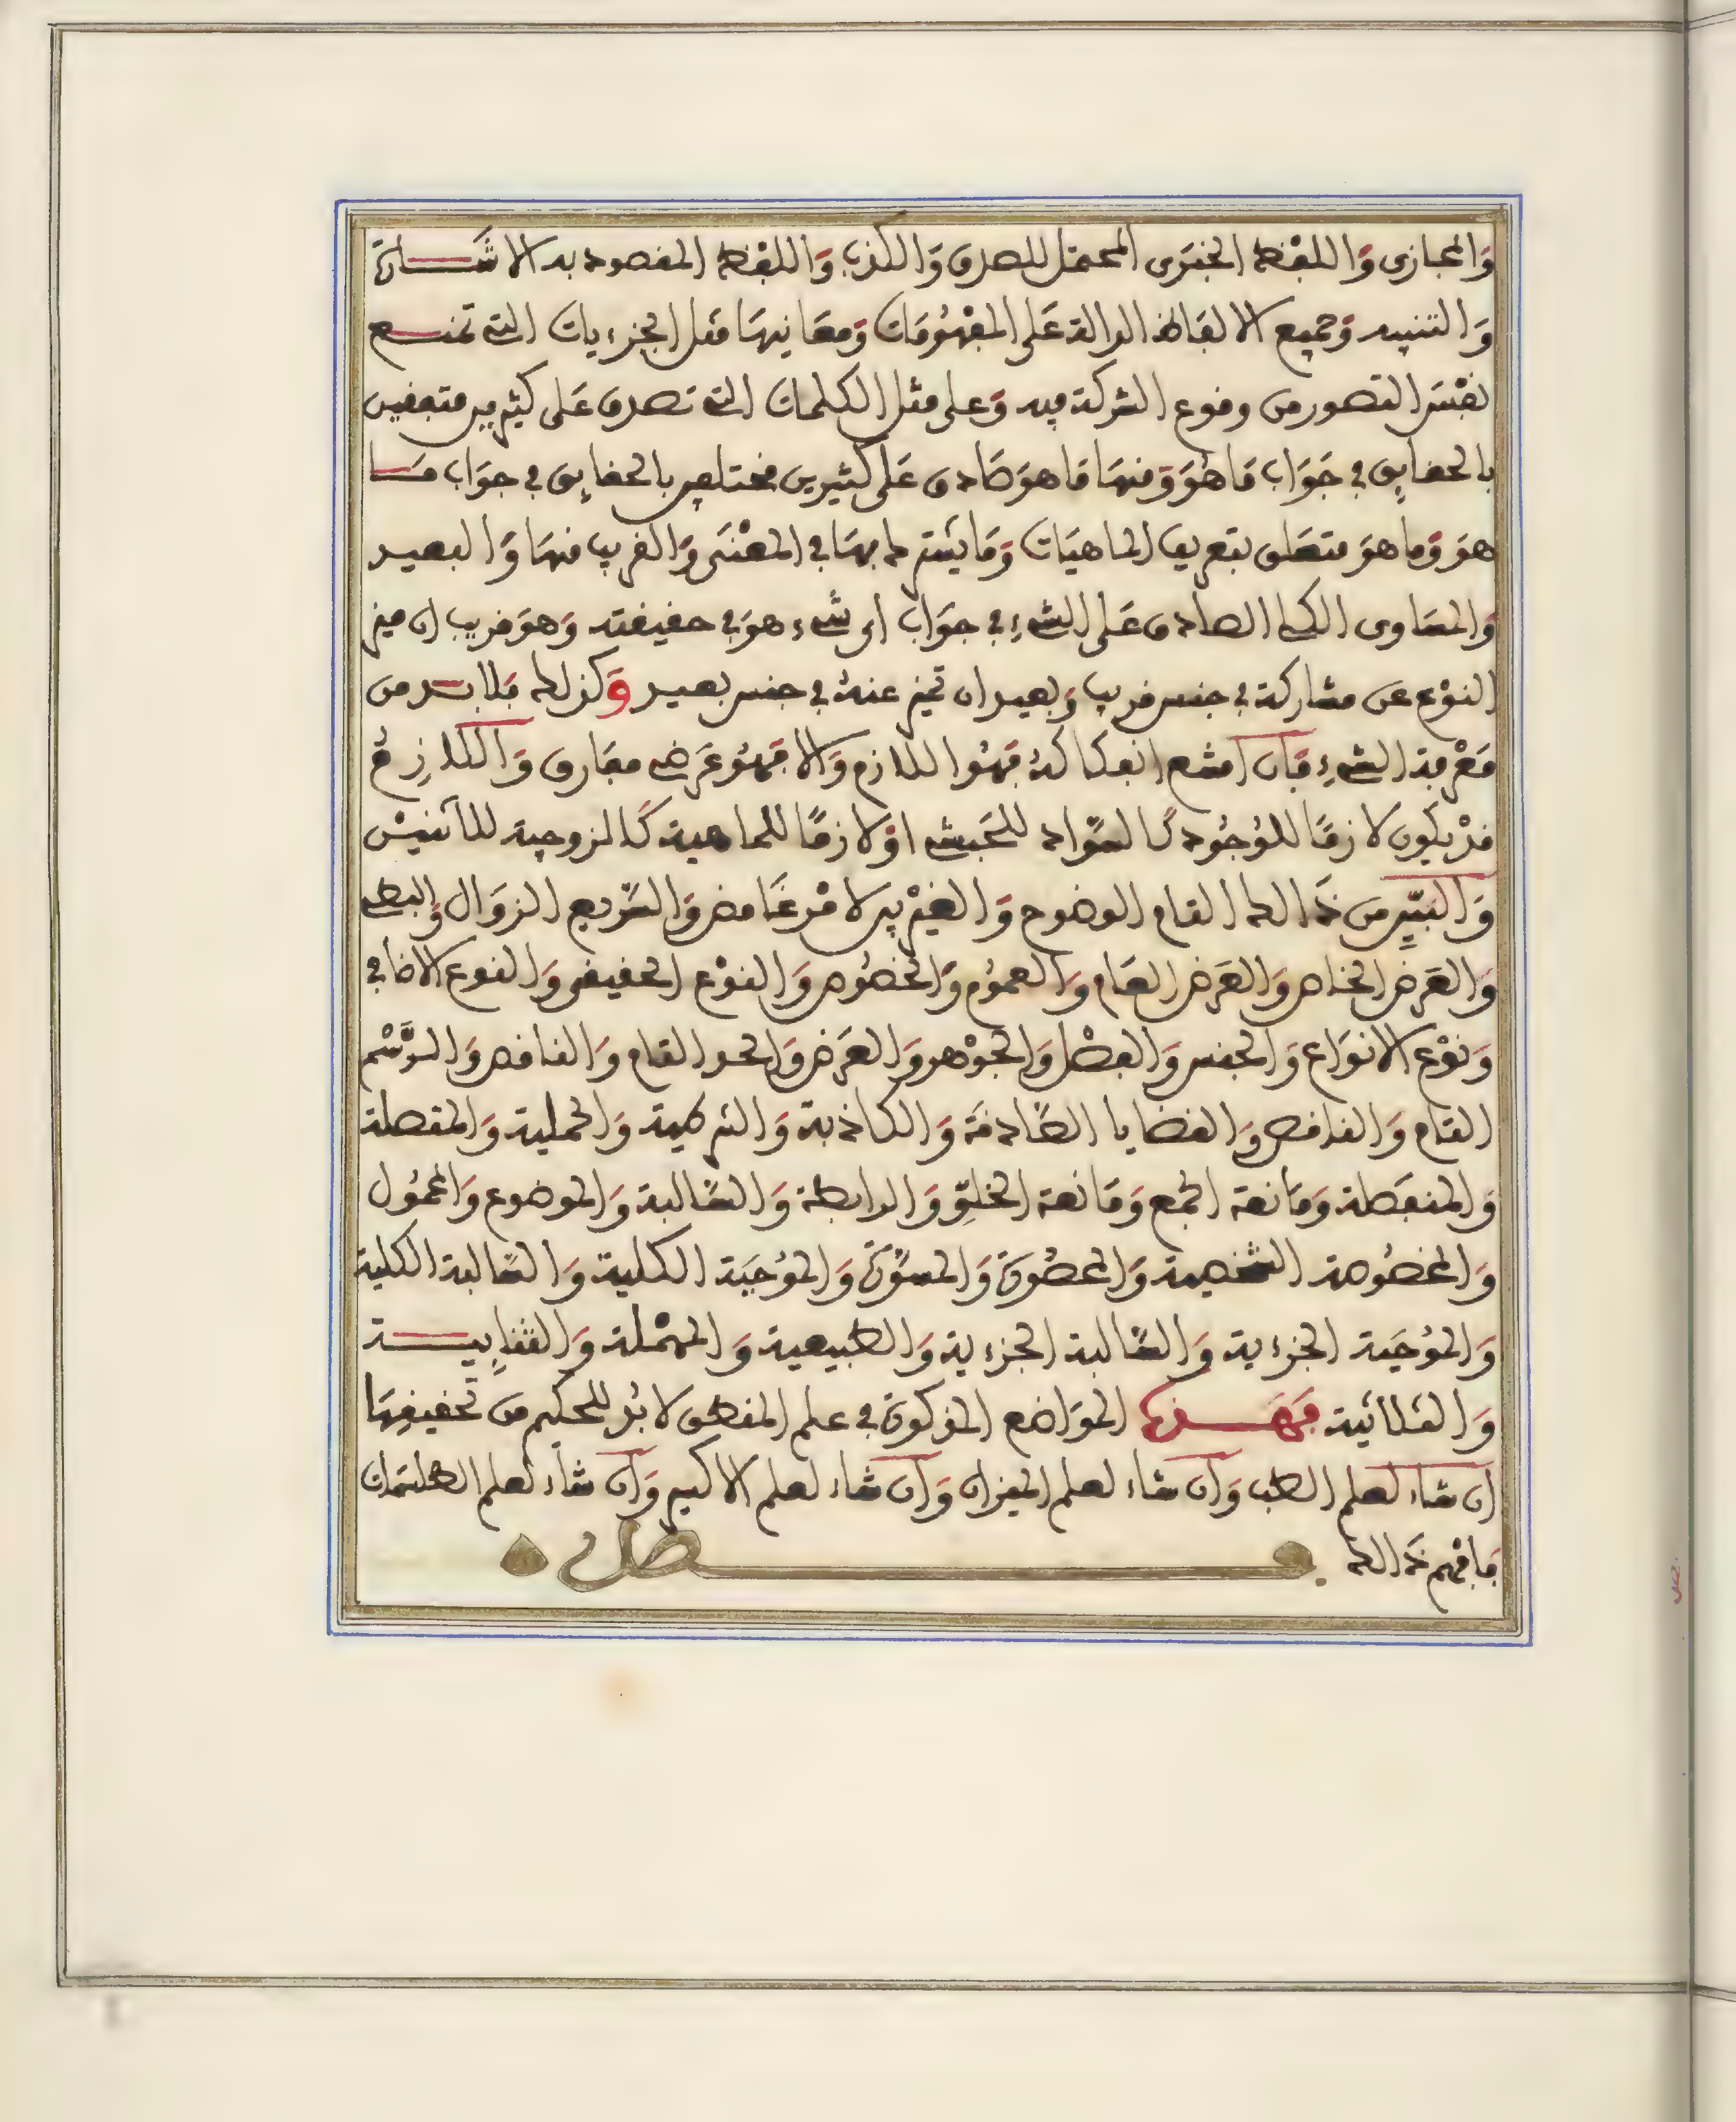 وَالمجازى وَاللفْظ الخبَرى المحتمل للصدق وَالكذب وَاللفْظ المقصود به الاشَارة
وَالتنبيه وَجميع الالفاظ الدالة عَلى المفهُومَات وَمعَانيهَا مثل الجزءيات التى تمنع
نفسَ التصور من وقوع الشركة فيه وَعلى مثل الكلمات التى تصدق عَلى كثيرين متفقين
بالحقايق فى جَوَاب مَا هُوَ وَمنهَا مَا هوَ صَادق عَلى كثيرين مختلفين بالحقايق فى جوَاب مَا
هوَ وَما هوَ متعَلق بتعريف الماهيَات وَمَا يشترط بهَا فى المعْنَى وَالقريب منهَا وَالبعيد
وَالمسَاوى الكلى الصادق عَلى الشىءِ فى جوَاب اى شىء هوَ فى حقيقته وَهوَ قريب ان ميز
النوْع عن مشاركة فى جنس قريب وَبعيد ان تميز عنهُ فى جنس بعيد وَكذلك فلابد من
مَعْرفة الشىءِ فَان امتنع انفكاكهُ فَهُوَ اللازم وَالا فَهُوَ عَرَض مفَارق وَاللازِمُ
قدْ يكون لازمًا للوُجُود كالسَّواد للحَبشى اوْ لازمًا للماهية كَالزوجية للاثنيْن
وَالبَيِّن من ذَالك التام الوضوح وَالغيْر بين لامْر غَامض وَالسَّريع الزوَال وَالبطى
وَالعَرَض الخاص وَالعَرَض العَام وَالعمُوم وَالخصُوص وَالنوْع الحقيقى وَالنوع الاضافى
وَنوْع الانوَاع وَالجنس وَالفصْل وَالجوْهر وَالعَرَض وَالحد التام وَالناقص وَالرَّسْم
التام وَالناقص وَالقضايا الصَّادقَة وَالكاذبة وَالشرطية وَالحملية وَالمتصلة
وَالمنفَصلة وَمَانعة الجمع وَمَانعة الخلوِّ وَالرابطة وَالسَّالبة وَالموضوع وَالمحمُول
وَالمخصُوصة الشخصية وَالمحصُورَة وَالمسَوَّرَة وَالمُوْجبَة الكلية وَالسَّالبة الكلية
وَالمُوْجَبة الجزءية وَالسَّالبة الجزءية وَالطبيعية وَالمهْملة وَالثنايِية
وَالثلاثية فهَذه الموَاضع المذكورَة فى علم المنطق لابُد للحكيم من تحقيقِهَا
ان شاء لعلم الطب وَان شاء لعلم الميزان وَان شاء لعلم الاكسير وَان شاء لعلم الطلسمات
فافهم ذَالك فصل